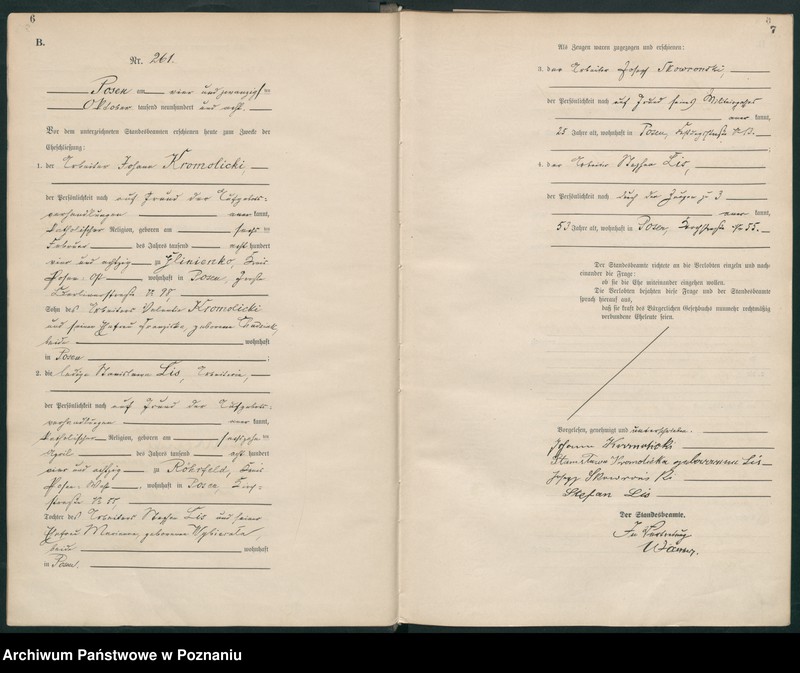 6
B.
Nr. 261.
Posen am vier und zwanzigsten
Oktober tausend neunhundert und acht.
Vor dem unterzeichneten Standesbeamten erschienen heute zum Zwecke der
Eheschließung:
1. der Arbeiter Johann Kromolicki,
der Persönlichkeit nach auf Grund der Aufgebots-
verhandlungen anerkannt,
katholischer Religion, geboren am sechsten
Februar des Jahres tausend acht hundert
vier und achtzig zu Glinienko, Kreis
Posen-Ost, wohnhaft in Posen, Große
Berlinerstraße N 98,
Sohn des Arbeiters Valentin Kromolicki
und seiner Ehefrau Franziska, geborene
beide wohnhaft
in Posen;
2. die ledige Stanislawa Lis, Arbeiterin,
der Persönlichkeit nach auf Grund der Aufgebots-
verhandlungen anerkannt,
katholischer Religion, geboren am sechzehnten
April des Jahres tausend acht hundert
vier und achtzig zu Rohrfeld, Kreis
Posen-West, wohnhaft in Posen,
straße N 55,
Tochter des Arbeiters Stephan Lis und seiner
Ehefrau Marianna, geborene
beide wohnhaft
in Posen.
7
Als Zeugen waren zugezogen und erschienen:
3. der Arbeiter Joseph Skowronski,
der Persönlichkeit nach auf Grund seines Militärpasses
anerkannt,
25 Jahre alt, wohnhaft in Posen,
4. der Arbeiter Stephan Lis,
der Persönlichkeit nach durch den Zeugen zu 3
anerkannt,
53 Jahre alt, wohnhaft in Posen, N 55.
Der Standesbeamte richtete an die Verlobten einzeln und nach-
einander die Frage:
ob sie die Ehe miteinander eingehen wollen.
Die Verlobten bejahten diese Frage und der Standesbeamte
sprach hierauf aus,
daß sie kraft des Bürgerlichen Gesetzbuchs nunmehr rechtmäßig
verbundene Eheleute seien.
Vorgelesen, genehmigt und unterschrieben.
Johann Kromolicki
Stanislawa Kromolicka geborene Lis
Skowroński
Stefan Lis
Der Standesbeamte.
In Vertretung
Archiwum Państwowe w Poznaniu